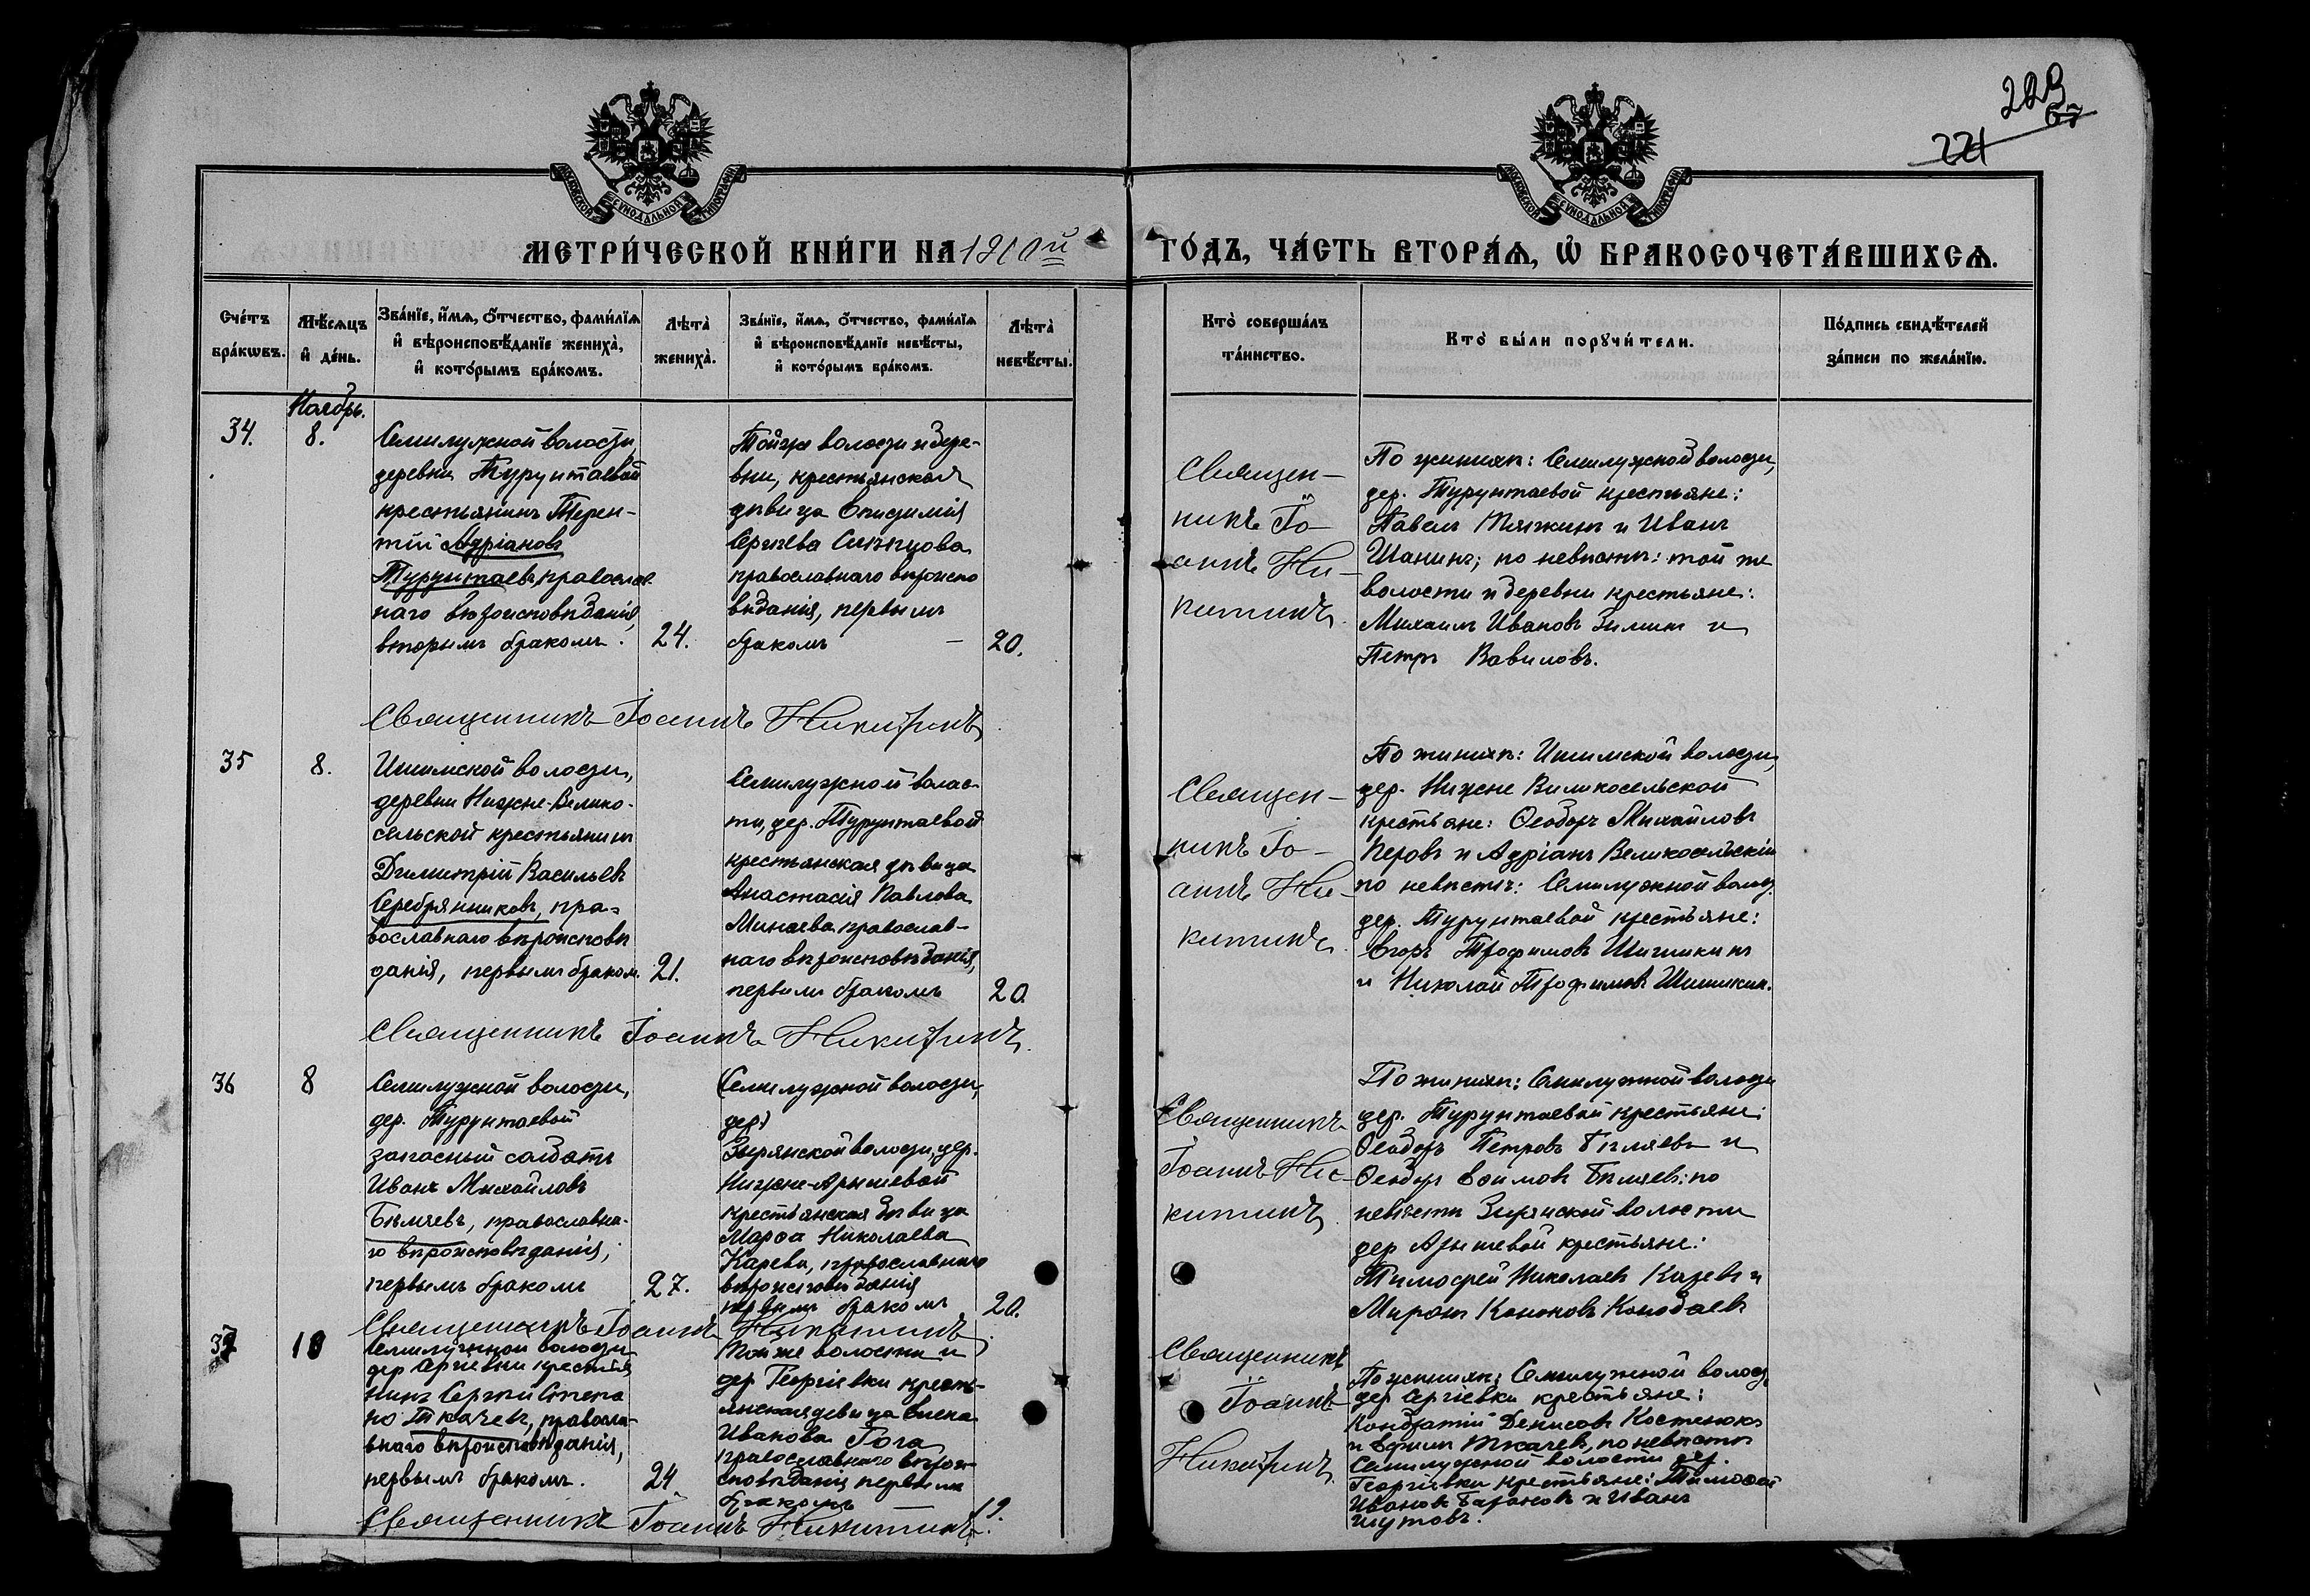 229
67
221
МОСКОВСКОЙ СѴНОДАЛЬНОЙ ТИПОГРАФІИ
МОСКОВСКОЙ СѴНОДАЛЬНОЙ ТИПОГРАФІИ
МЕТРИ́ЧЕСКОЙ КНИ́ГИ НА 1910й
ГО́ДЪ, ЧА́СТЬ ВТОРА́Ѧ, Ѽ БРАКОСОЧЕТА́ВШИХСѦ.
Сче́тъ
бра́кѡвъ.
Мѣ́сѧцъ
и҆ де́нь.
Зва́нїе, и҆́мѧ, ѻ҆́тчество, фами́лїѧ
и҆ вѣроисповѣ́данїе жениха̀,
и҆ кото́рымъ бра́комъ.
Лѣта̀
жениха̀.
Зва́нїе, и҆́мѧ, ѻ҆́тчество, фами́лїѧ
и҆ вѣроисповѣ́данїе невѣ́сты,
и҆ кото́рымъ бра́комъ.
Лѣта̀
невѣ́сты.
Кто̀ соверша́лъ
та́инство.
Кто̀ бы́ли порꙋчи́тели.
По́дпись свидѣ́телей
за́писи по жела́нїю.
Ноябрь.
34.
8.
Семилужной волости,
деревни Турунтаевой
крестьянинъ Терен-
тій Адріановъ
Турунтаевъ, православ-
наго вѣроисповѣданія,
вторымъ бракомъ.
24.
Тойже волости и дере-
вни, крестьянская
дѣвица Епидимія
Сергѣева Слѣпцова
православнаго вѣроиспо
вѣданія, первымъ
бракомъ —
20.
Священ-
никъ Іо-
аннъ Ни-
китинъ.
По женихѣ: Семилужной волости,
дер. Турунтаевой крестьяне:
Павелъ Пяжинъ и Иванъ
Шанинъ; по невѣстѣ: той же
волости и деревни крестьяне:
Михаилъ Ивановъ Зиминъ и
Петръ Вавиловъ.
Священникъ Іоаннъ Никитинъ.
35
8.
Ишимской волости,
деревни Нижне-Велико-
сельской крестьянинъ
Димитрій Васильевъ
Серебрянниковъ, пра-
вославнаго вѣроисповѣ
данія, первымъ браком.
21.
Семилужной волос-
ти, дер. Турунтаевой
крестьянская дѣвица
Анастасія Павлова
Минаева православ-
наго вѣроисповѣданія,
первымъ бракомъ
20.
Священ-
никъ Іо-
аннъ Ни-
китинъ.
По женихѣ: Ишимской волости,
дер. Нижне Великосельской
крестьяне: Ѳеодоръ Михайловъ
Перовъ и Адріанъ Великосельскій
по невѣстѣ: Семилужной волос.
дер. Турунтаевой крестьяне:
Егоръ Трофимовъ Шишикинъ
и Николай Трофимовъ Шишикин.
Священникъ Іоаннъ Никитинъ.
36
8
Семилужной волости,
дер. Турунтаевой
запасный солдатъ
Иванъ Михайловъ
Бѣляевъ, православна-
го вѣроисповѣданія,
первымъ бракомъ
27.
Семилужной волости,
дер.)
Зырянской волости, дер.
Нижне-Арышевой
крестьянская дѣвица
Марѳа Николаева
Карева, православнаго
вѣроисповѣданія
первымъ бракомъ
20.
Священникъ
Іоаннъ Ни-
китинъ.
По женихѣ: Семилужной волости
дер. Турунтаевой крестьяне:
Ѳеодоръ Петровъ Бѣляевъ и
Ѳеодоръ Еѳимовъ Бѣляевъ; по
невѣстѣ Зырянской волости
дер Арышевой крестьяне:
Тимоѳей Николаевъ Каревъ и
Миронъ Кононовъ Конобаевъ
Священникъ Іоаннъ Никитинъ.
37
10
Семилужной волости
дер Сергіевки крестья
нинъ Сергѣй Степа
но Ткачевъ, правосла-
внаго вѣроисповѣданія,
первымъ бракомъ.
24.
Той же волости и
дер Георгіевки кресть-
янская девица Елена
Иванова Гога
православнаго вѣрои-
сповѣданія первымъ
бракомъ —
19.
Священникъ
Іоаннъ
Никитинъ.
По женихѣ: Семилужной волос.
дер Сергіевки крестьяне:
Кондратій Денисовъ Костенюкъ
и Ефимъ Ткачевъ, по невѣстѣ
Семилужной волости дер.
Георгіевки крестьяне: Тимоѳей
Ивановъ Барановъ и Иванъ
Шутовъ.
Священникъ Іоаннъ Никитинъ.